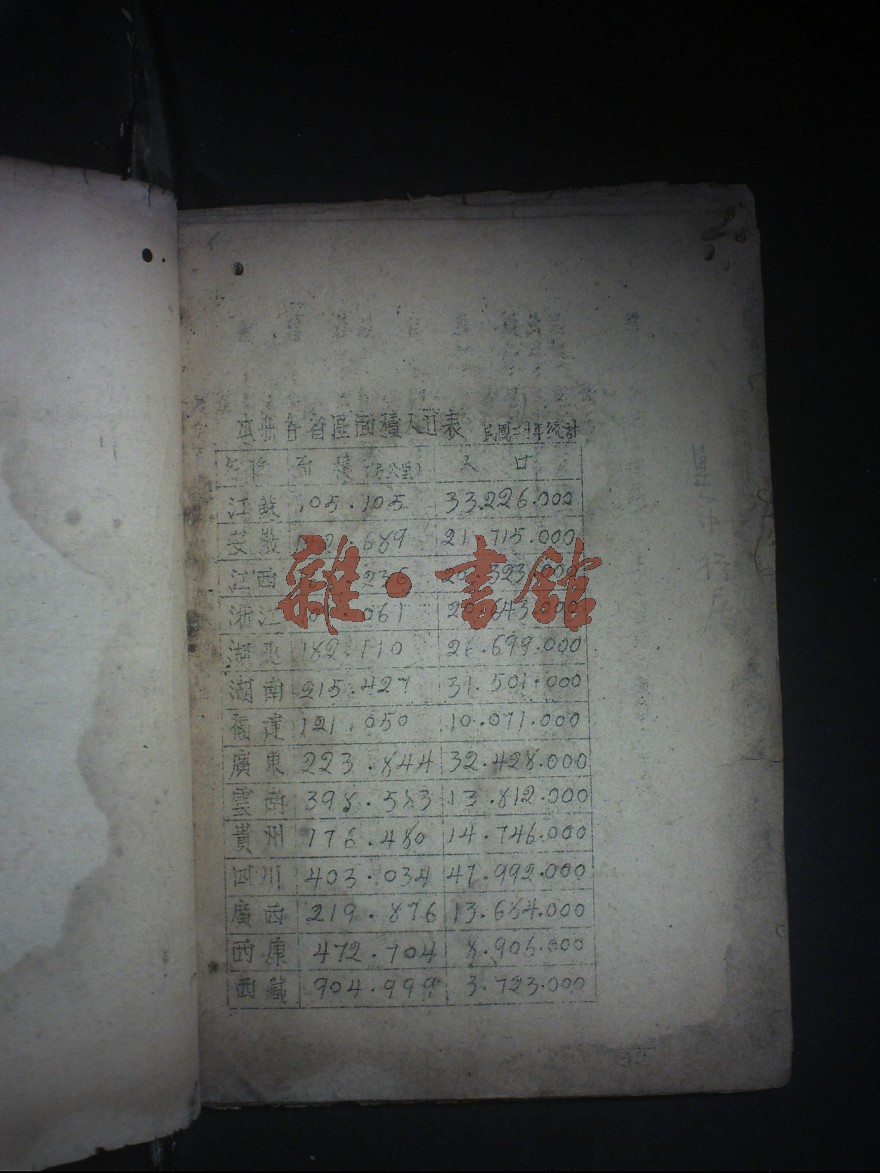 本冊各省區面積人口表 民國二十年統計
名稱 面積(方公里) 人口
江蘇 105.105 33.226.000
安徽 689 21.715.000
江西 236 323.000
浙江 061 20.643.000
湖北 182.110 26.699.000
湖南 215.427 31.501.000
福建 121.050 10.071.000
廣東 223.844 32.428.000
雲南 398.583 13.812.000
貴州 176.480 14.746.000
四川 403.034 47.992.000
廣西 219.876 13.684.000
西康 472.704 8.906.000
西藏 904.999 3.723.000
雜·書館